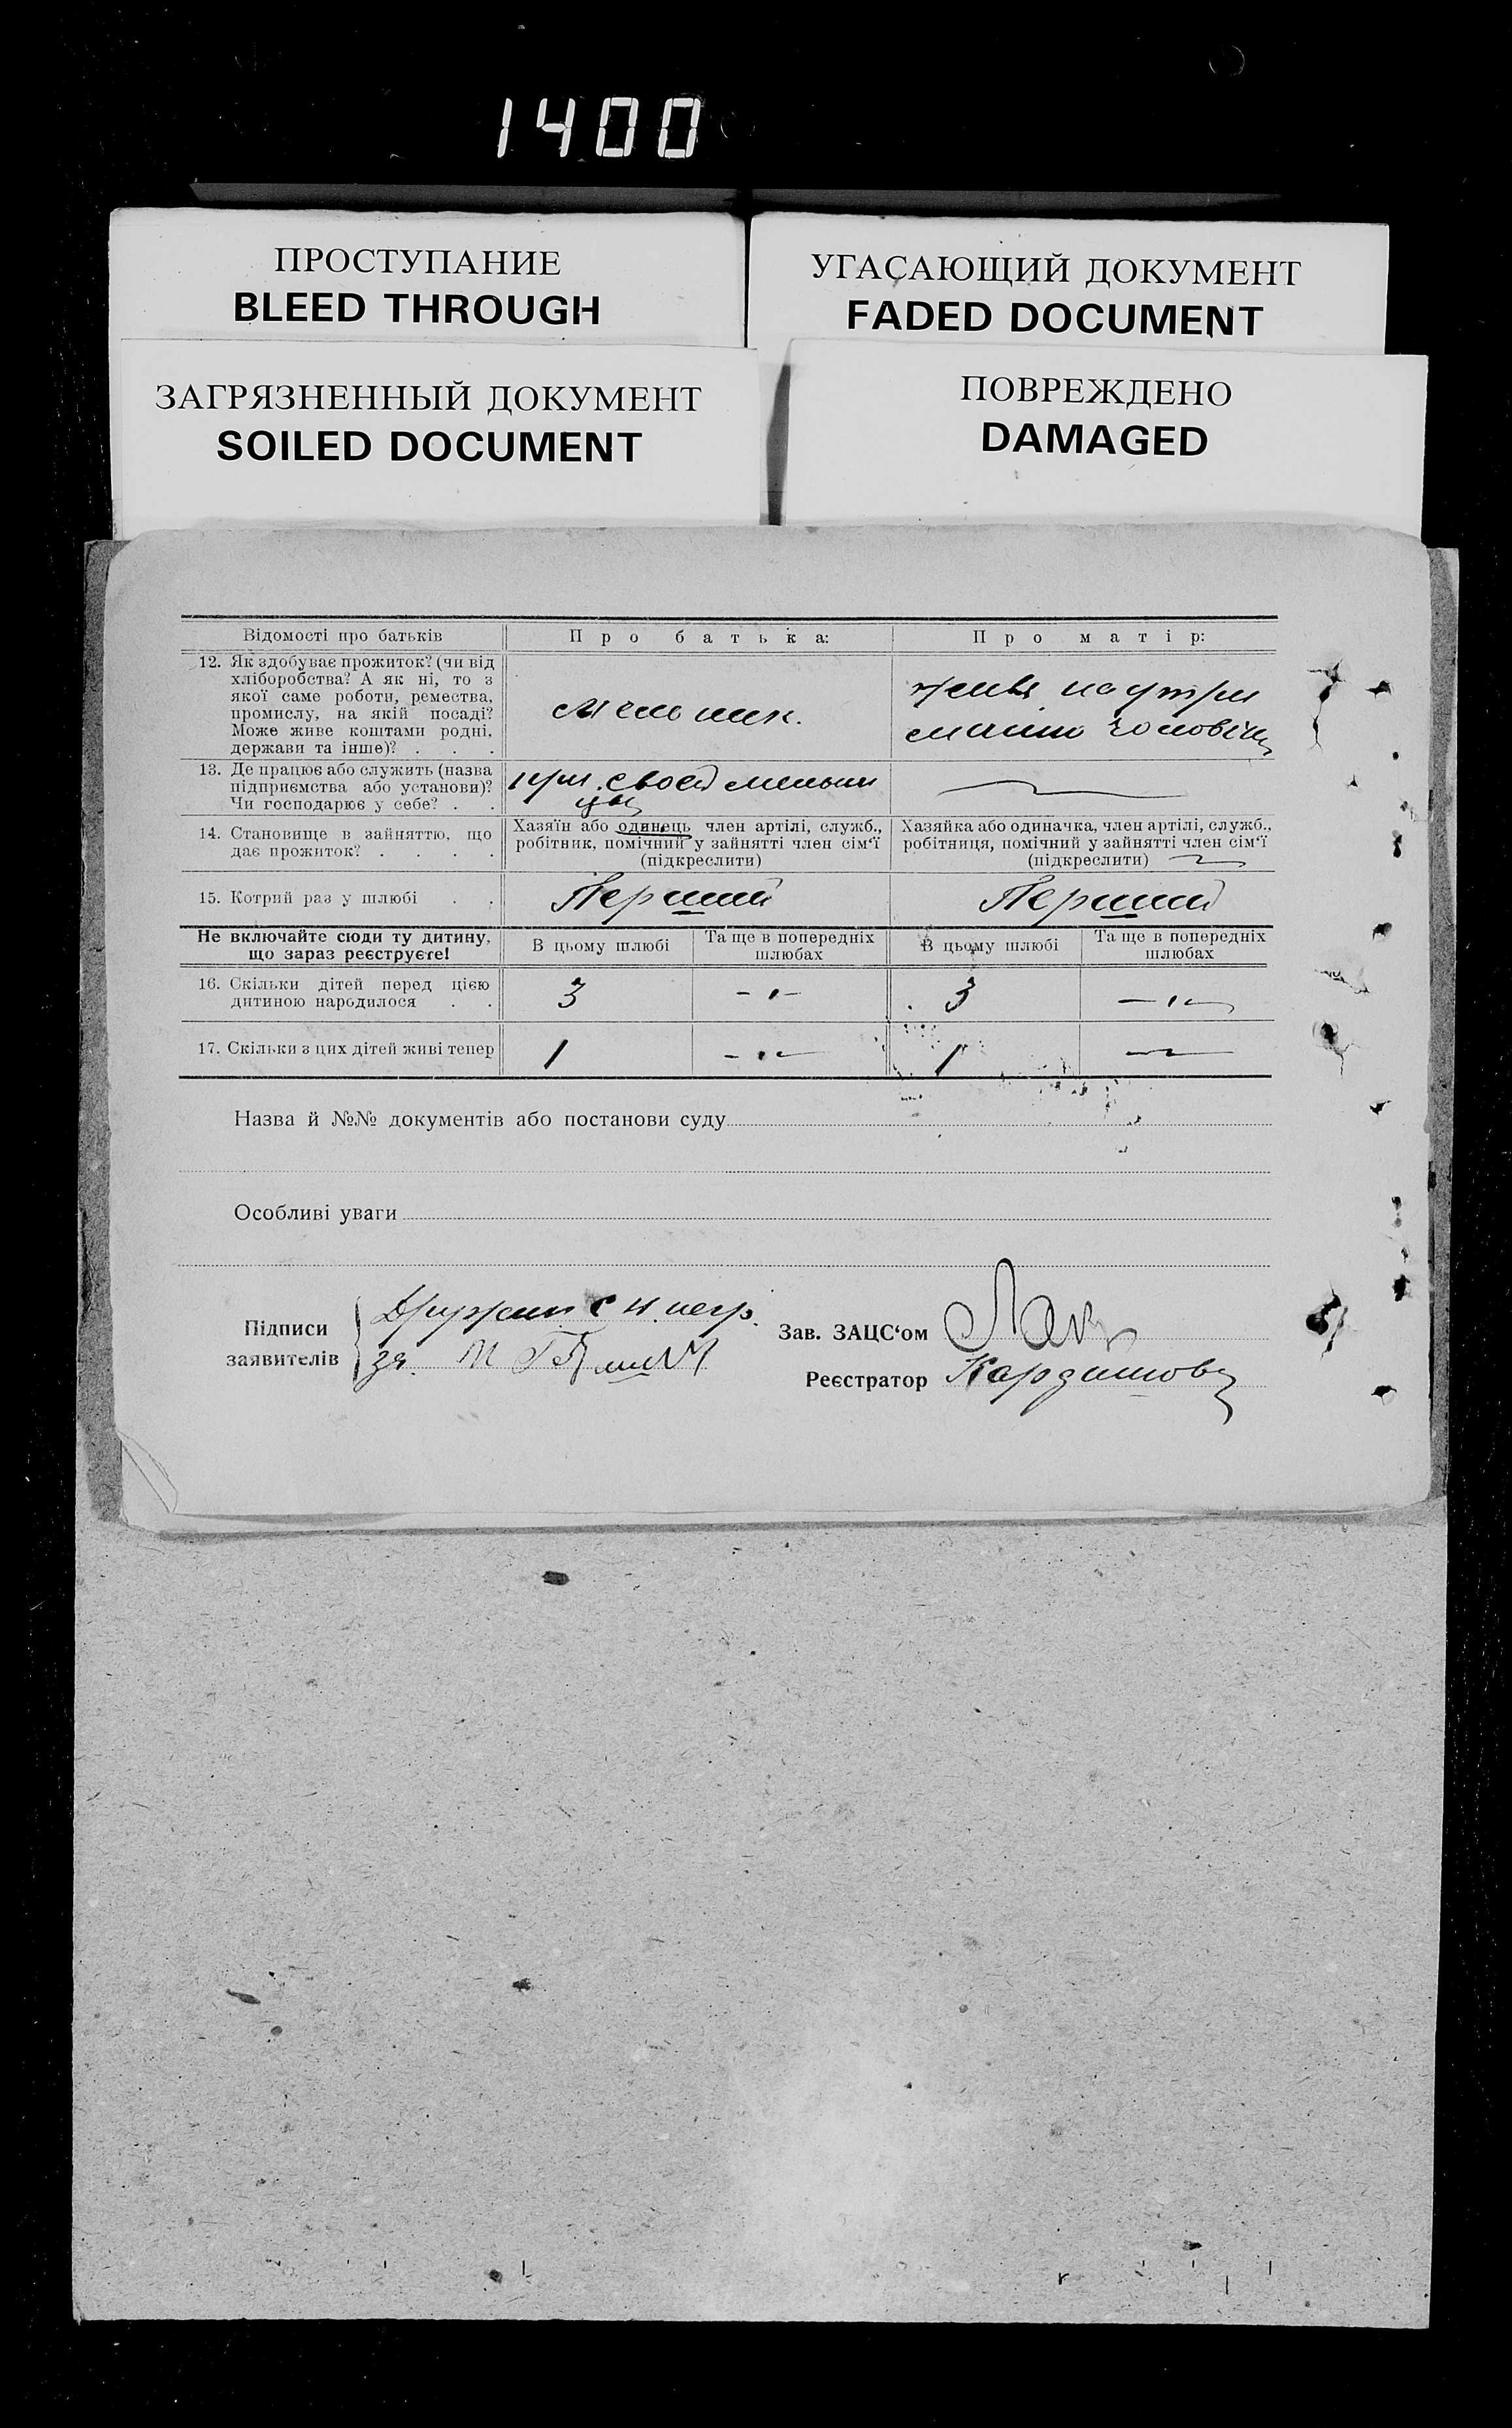 1400
ПРОСТУПАНИЕ
BLEED THROUGH
УГАСАЮЩИЙ ДОКУМЕНТ
FADED DOCUMENT
ЗАГРЯЗНЕННЫЙ ДОКУМЕНТ
SOILED DOCUMENT
ПОВРЕЖДЕНО
DAMAGED
Відомості про батьків
Про батька:
Про матір:
12. Як здобуває прожиток? (чи від
хліборобства? А як ні, то з
якої саме роботи, ремества,
промислу, на якій посаді?
Може живе коштами родні,
держави та інше)? . . .
мельник.
живе на утри
манню чоловіка
13. Де працює або служить (назва
підприємства або установи)?
Чи господарює у себе? . .
при своей мельни
цы
14. Становище в зайняттю, що
дає прожиток? . . . .
Хазяїн або одинець член артілі, служб.,
робітник, помічний у зайнятті член сім‘ї
(підкреслити)
Хазяйка або одиначка, член артілі, служб.,
робітниця, помічний у зайнятті член сім‘ї
(підкреслити)
15. Котрий раз у шлюбі . .
Перший
Перший
Не включайте сюди ту дитину,
що зараз реєструєте!
В цьому шлюбі
Та ще в попередніх
шлюбах
В цьому шлюбі
Та ще в попередніх
шлюбах
16. Скільки дітей перед цією
дитиною народилося . .
3
-"-
3
-"-
17. Скільки з цих дітей живі тепер
1
-"-
1
Назва й №№ документів або постанови суду
Особливі уваги
Підписи
заявителів
за
Зав. ЗАЦС‘ом
Реєстратор